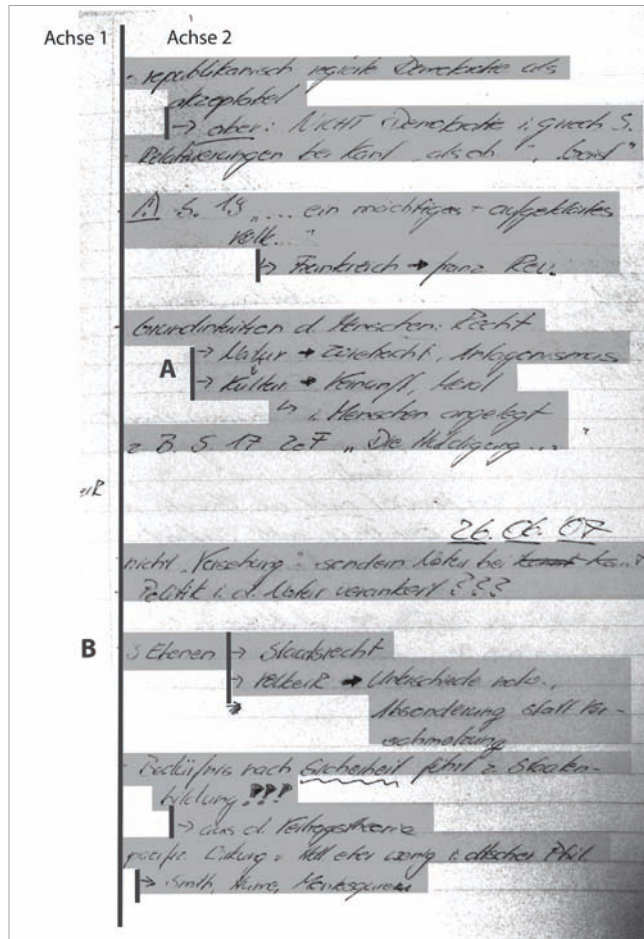 Achse 1 Achse 2
- republikanisch regierte Demokratie als
akzeptabel
→ aber: NICHT Demokratie i. griech S.
Relativierungen bei Kant „als ob“, „
⚠ S. 19 „... ein mächtiges + aufgeklärtes
Volk...“
↳ Frankreich → franz. Rev.
- d. Menschen: Recht
A → Natur → Zwietracht, Antagonismus
→ Kultur → Vernunft, Moral
↳ i. Menschen angelegt
z. B. S. 17 ZeF „Die Huldigung...“
26. 06. 07
nicht „Vorsehung“ sondern Natur bei Kant
Politik i. d. Natur verankert???
B 3 Ebenen → Staatsrecht
→ VölkeR → Unterschiede
Absonderung statt Ver-
schmelzung
- Bedürfnis nach Sicherheit führt z. Staaten-
bildung???
→ aus d. Vertragstheorie
pacific eher wenig i. dtscher Phil.
→ Smith, Hume, Montesquieu